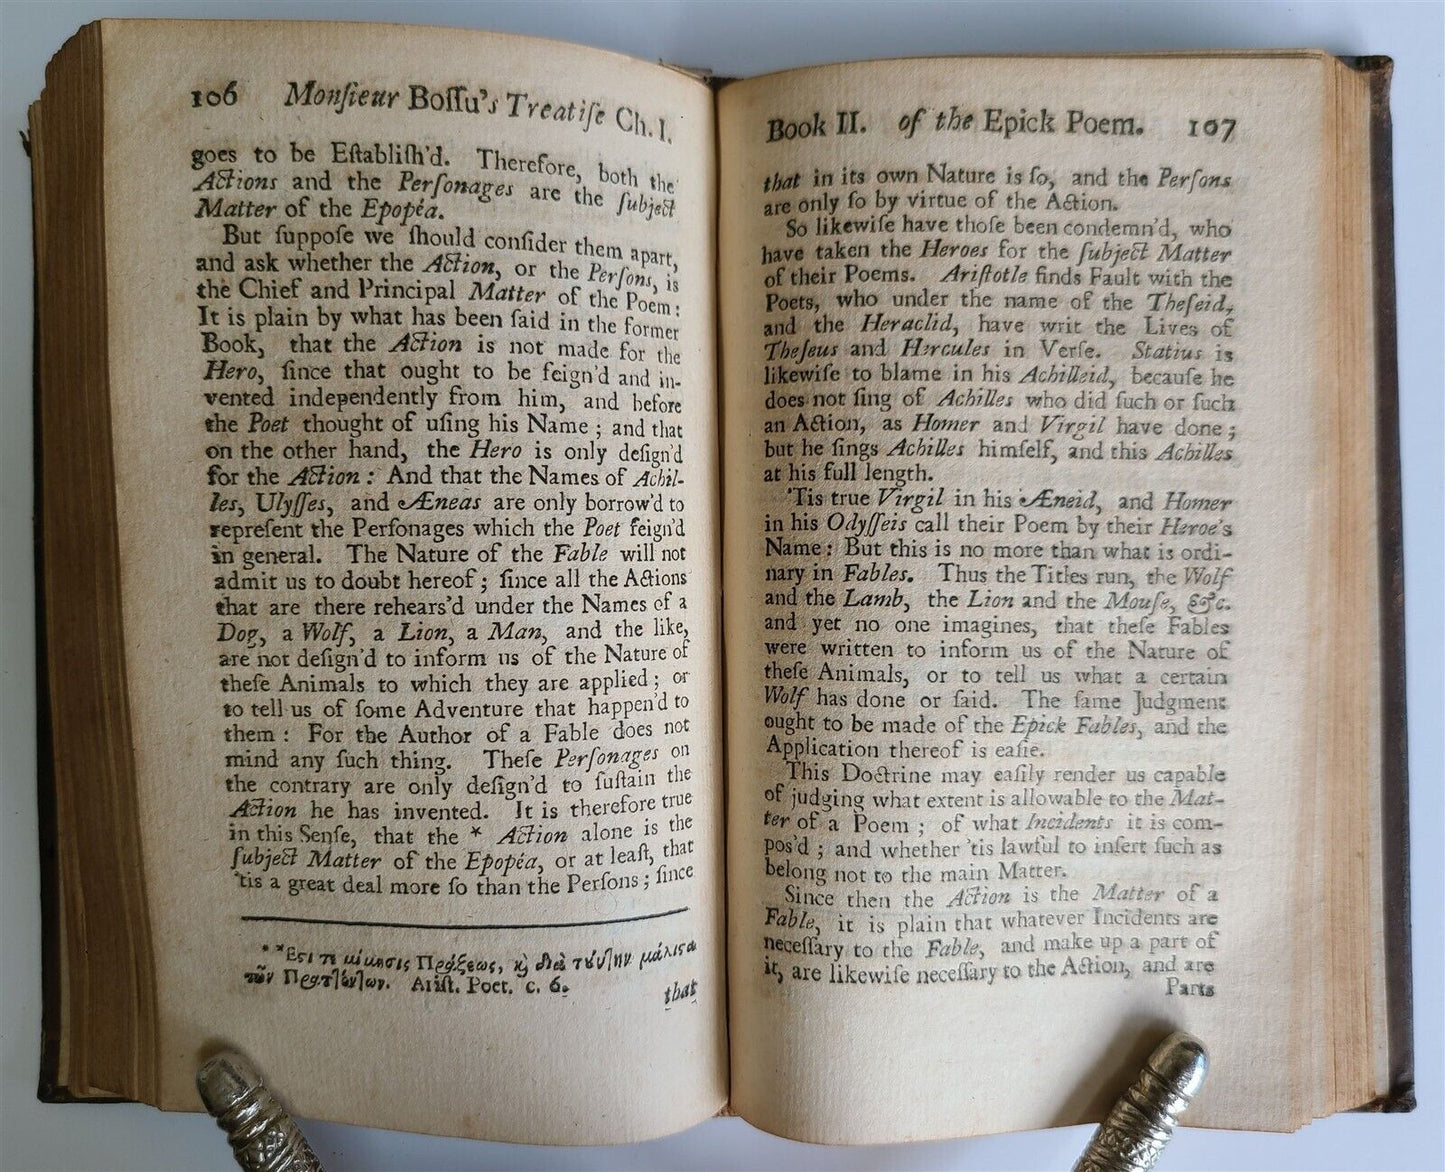 106 Monſieur Boſſu's Treatiſe Ch. I.
goes to be Eſtabliſh'd. Therefore, both the
Actions and the Perſonages are the ſubject
Matter of the Epopéa.
But ſuppoſe we ſhould conſider them apart,
and ask whether the Action, or the Perſons, is
the Chief and Principal Matter of the Poem:
It is plain by what has been ſaid in the former
Book, that the Action is not made for the
Hero, ſince that ought to be feign'd and in-
vented independently from him, and before
the Poet thought of uſing his Name; and that
on the other hand, the Hero is only deſign'd
for the Action: And that the Names of Achil-
les, Ulyſſes, and Æneas are only borrow'd to
repreſent the Perſonages which the Poet feign'd
in general. The Nature of the Fable will not
admit us to doubt hereof; ſince all the Actions
that are there rehears'd under the Names of a
Dog, a Wolf, a Lion, a Man, and the like,
are not deſign'd to inform us of the Nature of
theſe Animals to which they are applied; or
to tell us of ſome Adventure that happen'd to
them: For the Author of a Fable does not
mind any ſuch thing. Theſe Perſonages on
the contrary are only deſign'd to ſuſtain the
Action he has invented. It is therefore true
in this Senſe, that the * Action alone is the
ſubject Matter of the Epopéa, or at leaſt, that
'tis a great deal more ſo than the Perſons; ſince
* Ἔςι τε μίμησις Πράξεως, ϗ διὰ ταύτην μάλιςα
τῶν Πραττόντων. Ariſt. Poet. c. 6.
that
Book II. of the Epick Poem. 107
that in its own Nature is ſo, and the Perſons
are only ſo by virtue of the Action.
So likewiſe have thoſe been condemn'd, who
have taken the Heroes for the ſubject Matter
of their Poems. Ariſtotle finds Fault with the
Poets, who under the name of the Theſeid,
and the Heraclid, have writ the Lives of
Theſeus and Hercules in Verſe. Statius is
likewiſe to blame in his Achilleid, becauſe he
does not ſing of Achilles who did ſuch or ſuch
an Action, as Homer and Virgil have done;
but he ſings Achilles himſelf, and this Achilles
at his full length.
'Tis true Virgil in his Æneid, and Homer
in his Odyſſeis call their Poem by their Heroe's
Name: But this is no more than what is ordi-
nary in Fables. Thus the Titles run, the Wolf
and the Lamb, the Lion and the Mouſe, &c.
and yet no one imagines, that theſe Fables
were written to inform us of the Nature of
theſe Animals, or to tell us what a certain
Wolf has done or ſaid. The ſame Judgment
ought to be made of the Epick Fables, and the
Application thereof is eaſie.
This Doctrine may eaſily render us capable
of judging what extent is allowable to the Mat-
ter of a Poem; of what Incidents it is com-
pos'd; and whether 'tis lawful to inſert ſuch as
belong not to the main Matter.
Since then the Action is the Matter of a
Fable, it is plain that whatever Incidents are
neceſſary to the Fable, and make up a part of
it, are likewiſe neceſſary to the Action, and are
Parts